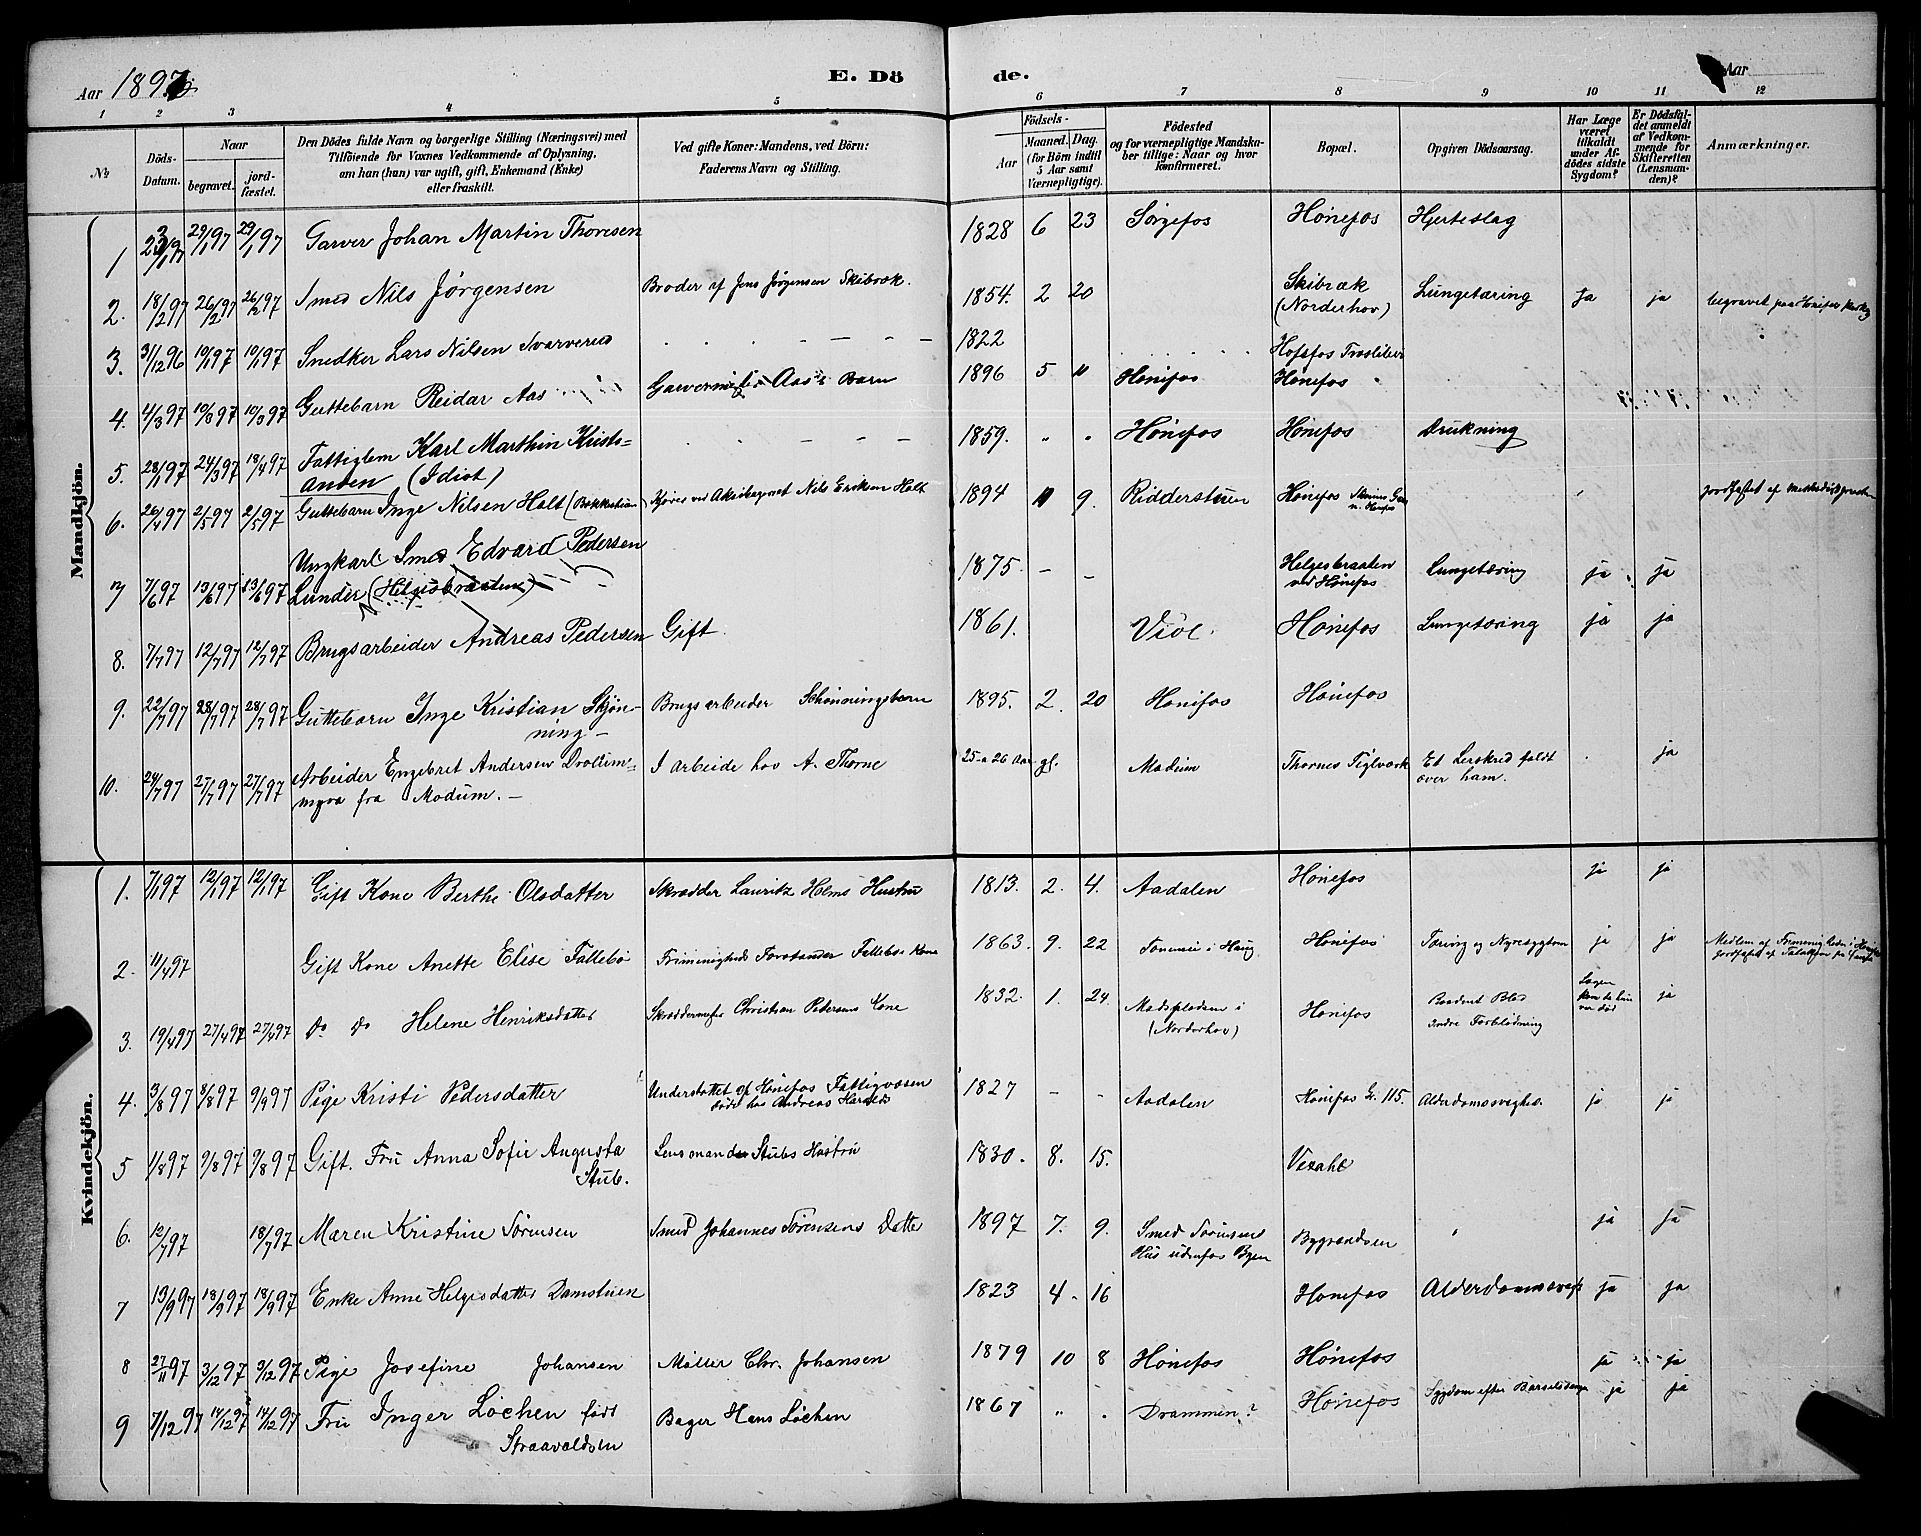 Aar 1897
E. Dö
de.
Aar
1 2 3 4 5 6 7 8 9 10 11 12
No
Döds-Datum.
Naar
begravet.
jord-fæstet.
Den Dödes fulde Navn og borgerlige Stilling (Næringsvei) med
Tilföiende for Voxnes Vedkommende af Oplysning,
om han (hun) var ugift, gift, Enkemand (Enke)
eller fraskilt.
Ved gifte Koner: Mandens, ved Börn:
Faderens Navn og Stilling.
Födsels-
Aar
Maaned. Dag.
(for Börn indtil
5 Aar samt
Værnepligtige).
Födested
og for værnepligtige Mandska-
ber tillige: Naar og hvor
konfirmeret.
Bopæl.
Opgiven Dödsaarsag.
Har Læge
været
tilkaldt
under Af-
dödes sidste
Sygdom?
Er Dödsfal-
det anmeldt
af Vedkom-
mende for
Skifteretten
(Lensman-
den)?
Anmærkninger.
Mandkjön.
1 23/1 97 29/1 97 29/1 97 Garver Johan Martin Thoresen 1828 6 23 Sørgefos Hönefos Hjerteslag
2. 18/2 97 26/2 97 26/2 97 Smed Nils Jørgensen Broder af Jens Jørgensen Skibræk. 1854. 2 20 Skibræk (Norderhov) Lungetæring Ja ja begravet paa Hönefos
3. 31/12 96 10/1 97 10/1 97 Snedker Lars Nilsen Svarverud 1822 Hofsfos Træsliberi
4. 4/3 97 10/3 97 10/3 97 Guttebarn Reidar Aas Garvermester Aas's Barn 1896 5 11 Hönefos Hönefos
5. 28/1 97 24/3 97 18/4 97 Fattiglem Karl Marthin Kristi-
ansen (Idiot) 1859. Hönefos Hönefos Drukning
6. 26/4 97 2/5 97 2/5 97 Guttebarn Inge Nilsen Holt Nils Eriksen Holt 1894 11 9. Ridderstuen Hönefos jordfæstet af Methodistpresten
7 7/6 97 13/6 97 13/6 97 Ungkarl Smed Edvard Pedersen
Lunder (Helgesbraaten) 1875 - - Helgesbraaten
ved Hönefos Lungetæring ja ja
8. 7/7 97 12/7 97 12/7 97 Brugsarbeider Andreas Pedersen Gift. 1861. Viol. Hönefos Lungetæring ja ja
9. 22/7 97 28/7 97 28/7 97 Guttebarn Inge Kristian Skjön-
ning - Brugsarbeider Schönningsbarn 1895. 2. 20 Hönefos Hönefos
10. 24/7 97 27/7 97 27/7 97 Arbeider Engebret Andersen
myra fra Modum. - I arbeide hos A. Thorne 25 a 26 Aar gl. Modum Thornes Teglværk Et Lerskred faldt
over ham. ja
Kvindekjön.
1. 7/1 97 12/1 97 12/1 97 Gift Kone Berthe Olsdatter Skrædder Lauritz Holms Hustru 1813. 2. 4. Aadalen Hönefos ja ja
2. 11/4 97 Gift Kone Anette Elise Fallebö Frimenigheds Forstander Fallebös Kone 1863. 9. 22 i Haug Hönefos Tæring og Nyresygdom ja ja Medlem af Frimenigheden i Hönefos
jordfæstet af
3. 19/4 97 27/4 97 27/4 97 Do Do Helene Henriksdatter Skræddermester Christian Pedersens Kone 1832. 1. 24. i
(Norderhov) Hönefos Indre Forblödning Lægen
kom da hun
var död ja
4. 3/8 97 8/8 97 9/9 97 Pige Kristi Pedersdatter Understöttet af Hönefos Fattigvæsen
död hos Andreas 1827 - - Aadalen Hönefos Gr. 115. Alderdomssvaghed. ja ja
5 1/8 97 9/8 97 9/8 97 Gift. Fru Anna Sofie Augusta
Stub. Lensmand Stubs Hustru 1830. 8. 15. Vesahl
6. 12/7 97 18/7 97 Maren Kristine Sörensen Smed Johannes Sörensens Datter 1897 7. 9. Smed Sörensens
Hus udenfor Byen Bygrændsen ja ja
7 13/9 97 18/9 97 18/9 97 Enke Anne Helgesdatter Damstuen 1823 4 16 Hönefos Alderdomssvagh. ja ja
8 27/11 97 3/12 97 3/12 97 Pige Josefine Johansen Möller Chr. Johansen 1879 10 8 Hönefos Hönefos ja ja
9 7/12 97 14/12 97 14/12 97 Fru Inger Löchen födt
Straavaldsen Bager Hans Löchen 1867 Drammen? Hönefos Sygdom efter Barselseng ja ja